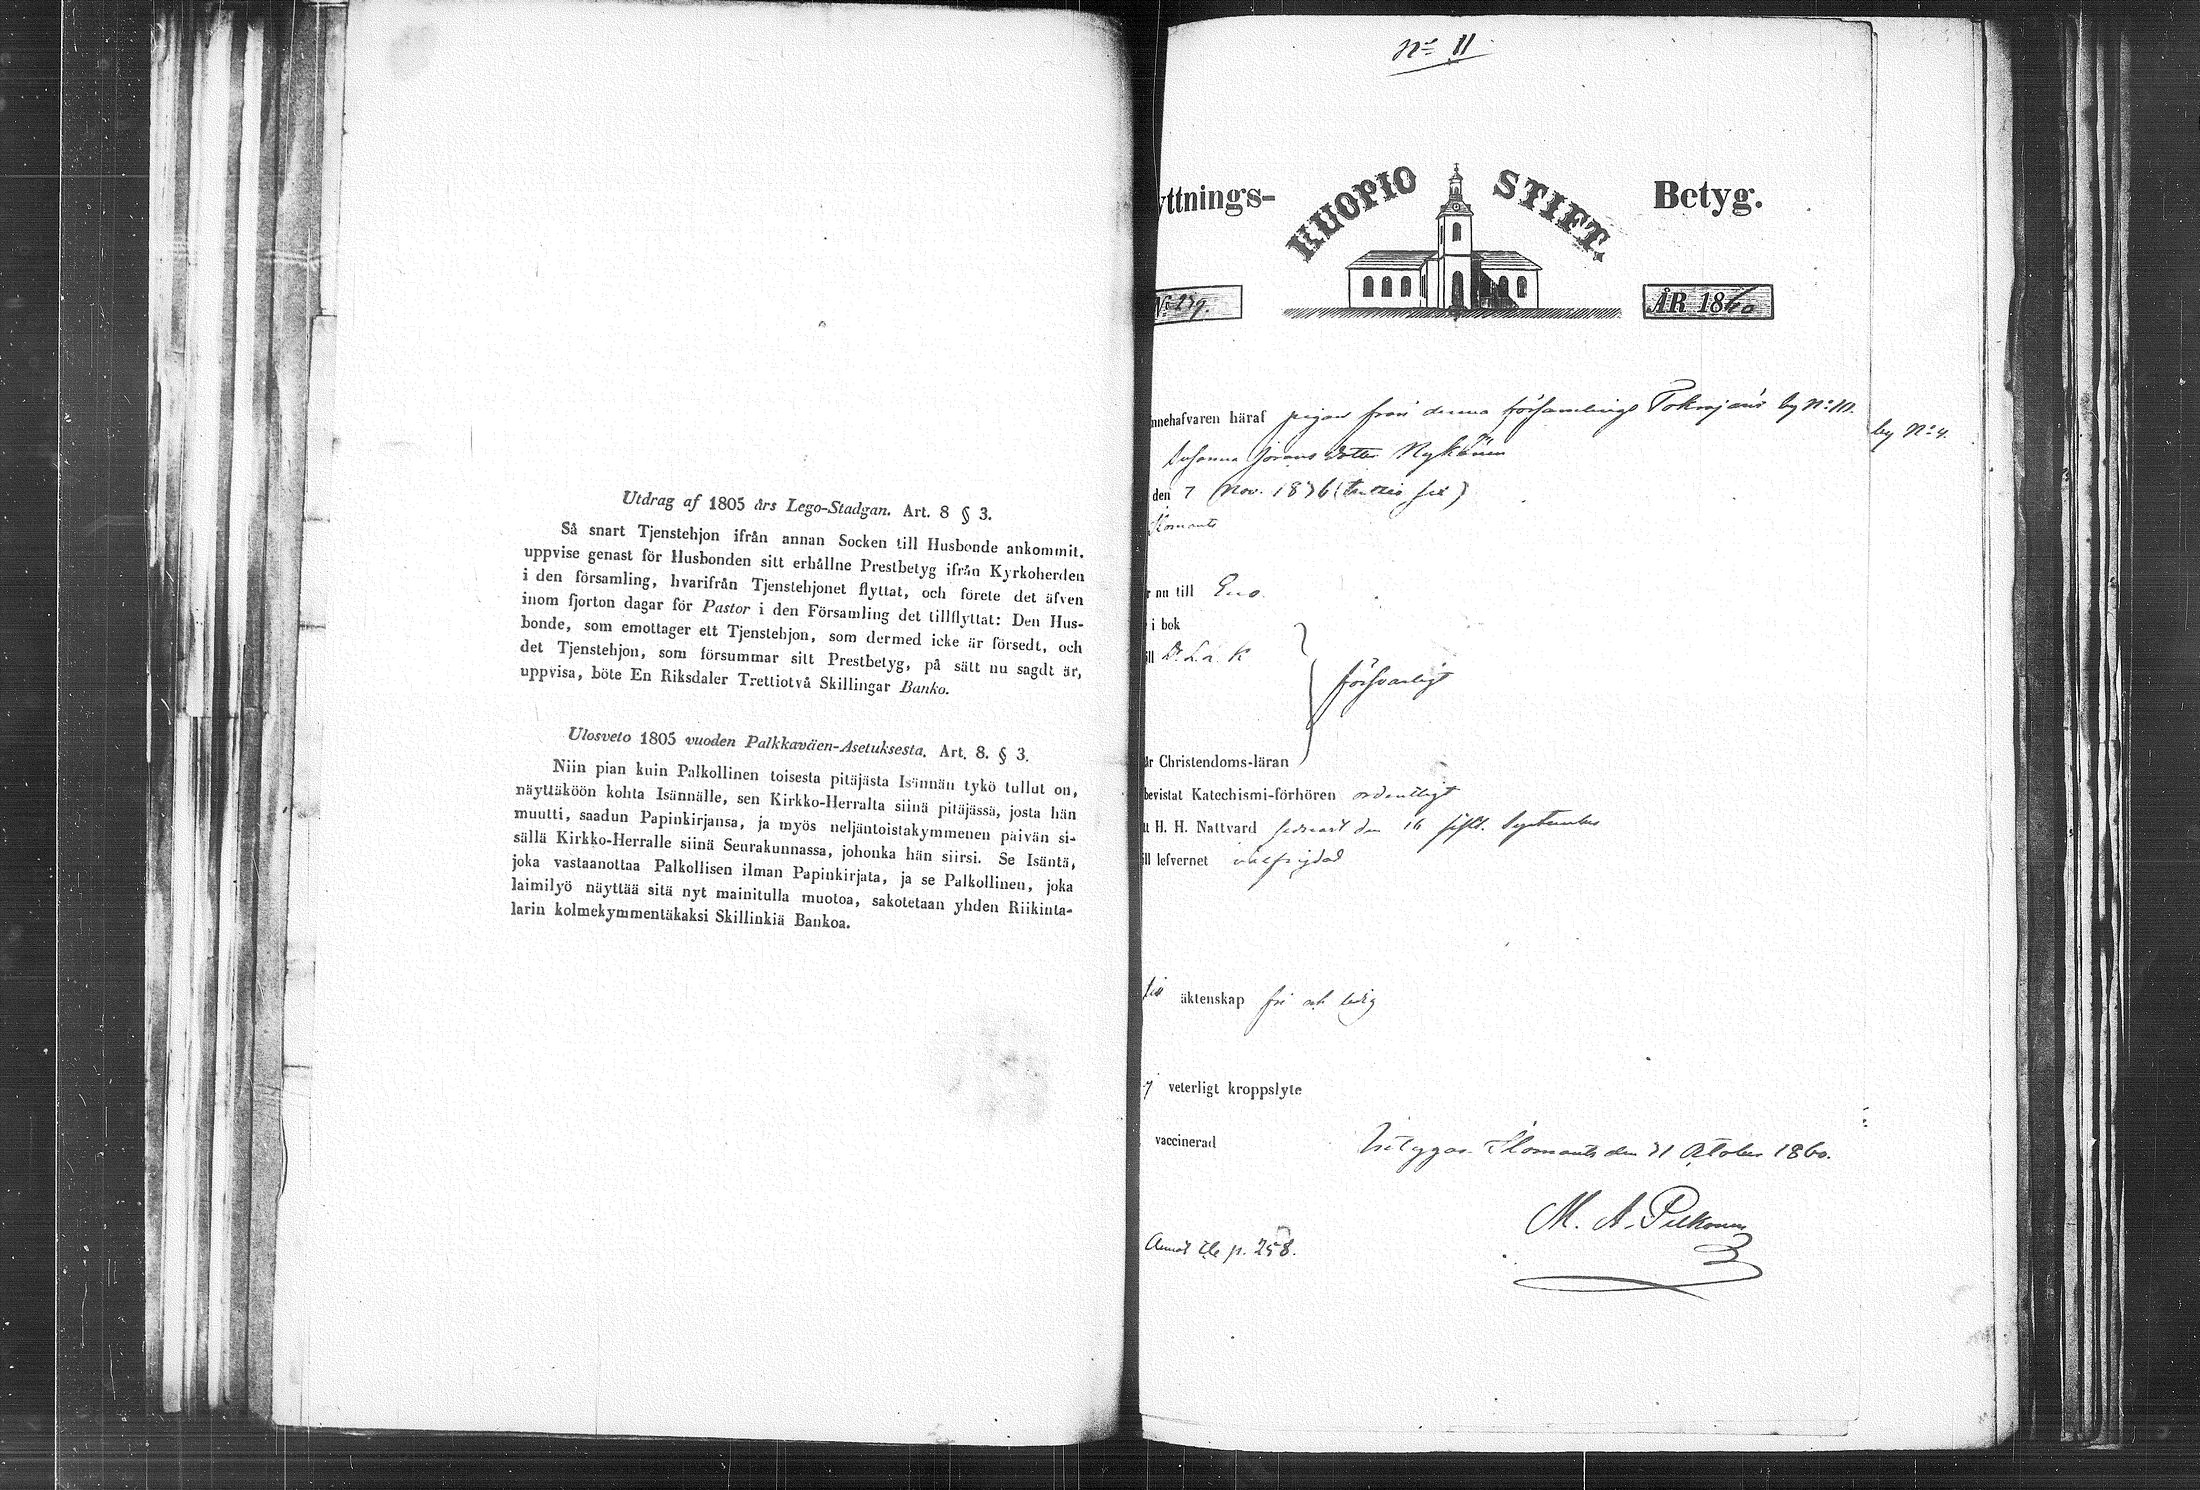 Utdrag af 1805 års Lego-Stadgan. Art. 8 § 3.
Så snart Tjenstehjon ifrån annan Socken till Husbonde ankommit,
uppvise genast för Husbonden sitt erhållne Prestbetyg ifrån Kyrkoherden
i den församling, hvarifrån Tjenstehjonet flyttat, och förete det äfven
inom fjorton dagar för Pastor i den Församling det tillflyttat: Den Hus-
bonde, som emottager ett Tjenstehjon, som dermed icke är försedt, och
det Tjenstehjon, som försummar sitt Prestbetyg, på sätt nu sagdt är,
uppvisa, böte En Riksdaler Trettiotvå Skillingar Banko.
Ulosveto 1805 vuoden Palkkaväen-Asetuksesta. Art. 8. § 3.
Niin pian kuin Palkollinen toisesta pitäjästa Isännän tykö tullut on,
näyttäköön kohta Isännälle, sen Kirkko-Herralta siinä pitäjässä, josta hän
muutti, saadun Papinkirjansa, ja myös neljäntoistakymmenen päivän si-
sällä Kirkko-Herralle siinä Seurakunnassa, johonka hän siirsi. Se Isäntä,
joka vastaanottaa Palkollisen ilman Papinkirjata, ja se Palkollinen, joka
laimilyö näyttää sitä nyt mainitulla muotoa, sakotetaan yhden Riikinta-
larin kolmekymmentäkaksi Skillinkiä Bankoa.
No 11
yttnings- HUOPIO STIFT. Betyg.
No 239. ÅR 1860
nnehafvaren häraf pigan från denna församlings by No 10.
by No 4.
Susanna Jörans dotter Nykänen
den 7 Nov. 1836 (trettio sex)
Ilomants
r nu till Eno.
i bok
ll D. L. a. K
försvarligt
ar Christendoms-läran
bevistat Katechismi-förhören ordentligt
tt H. H. Nattvard senast den 16 sistl. September
ill lefvernet oklanderlig
till äktenskap fri och ledig
veterligt kroppslyte
vaccinerad
betygar. Ilomants den 31 October 1860.
M. A. Pelkonen
p. 258.